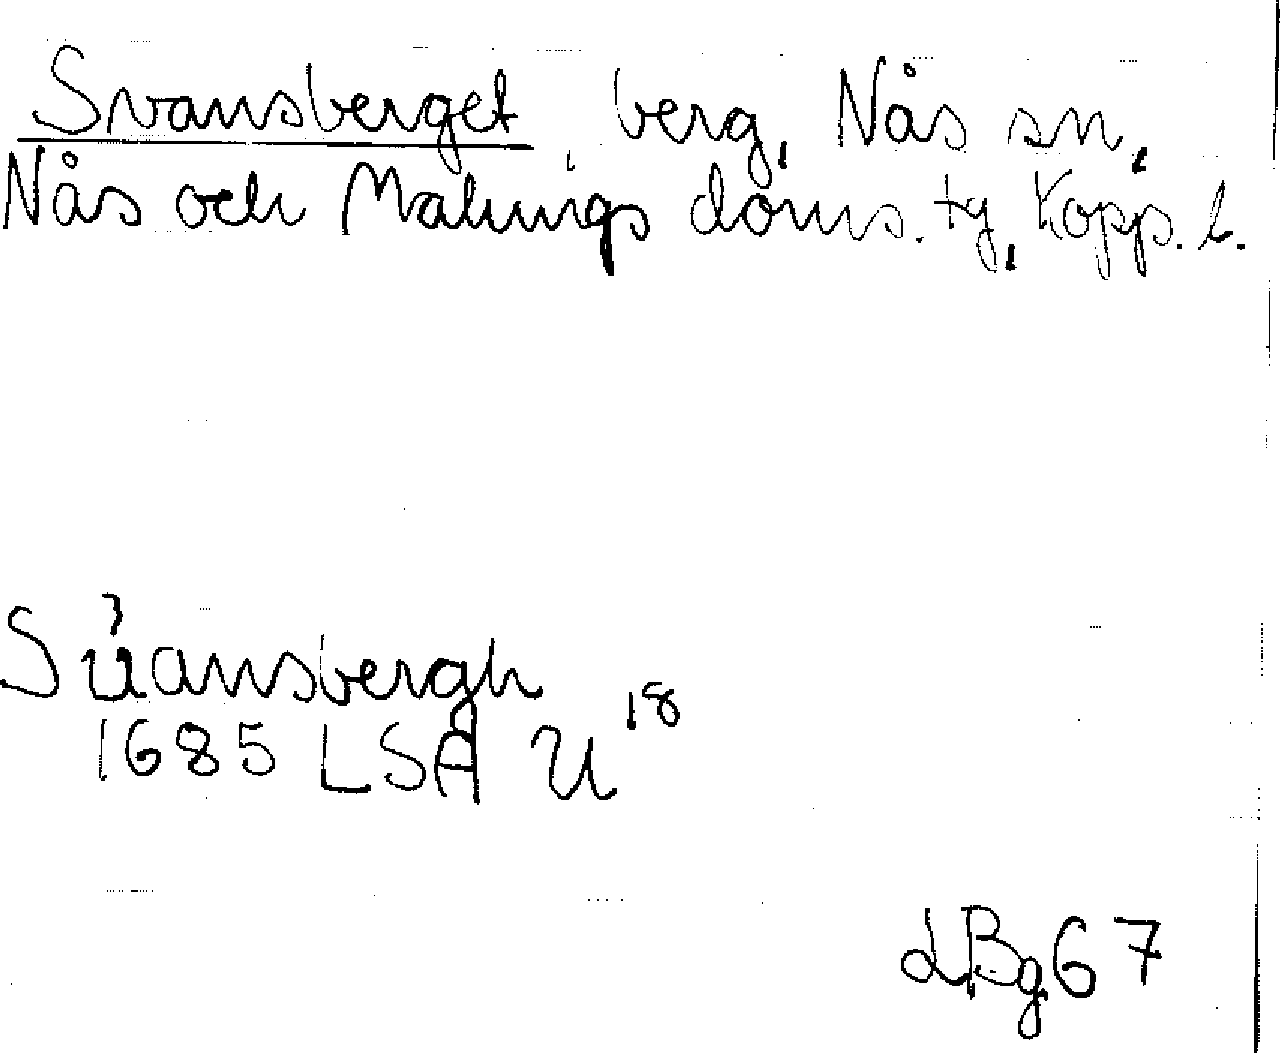 Svansberget berg, Nås sn,
Nås och Malungs doms. tg, Kopp. l.
Süansbergh
1685 LSA U 18
LBg67